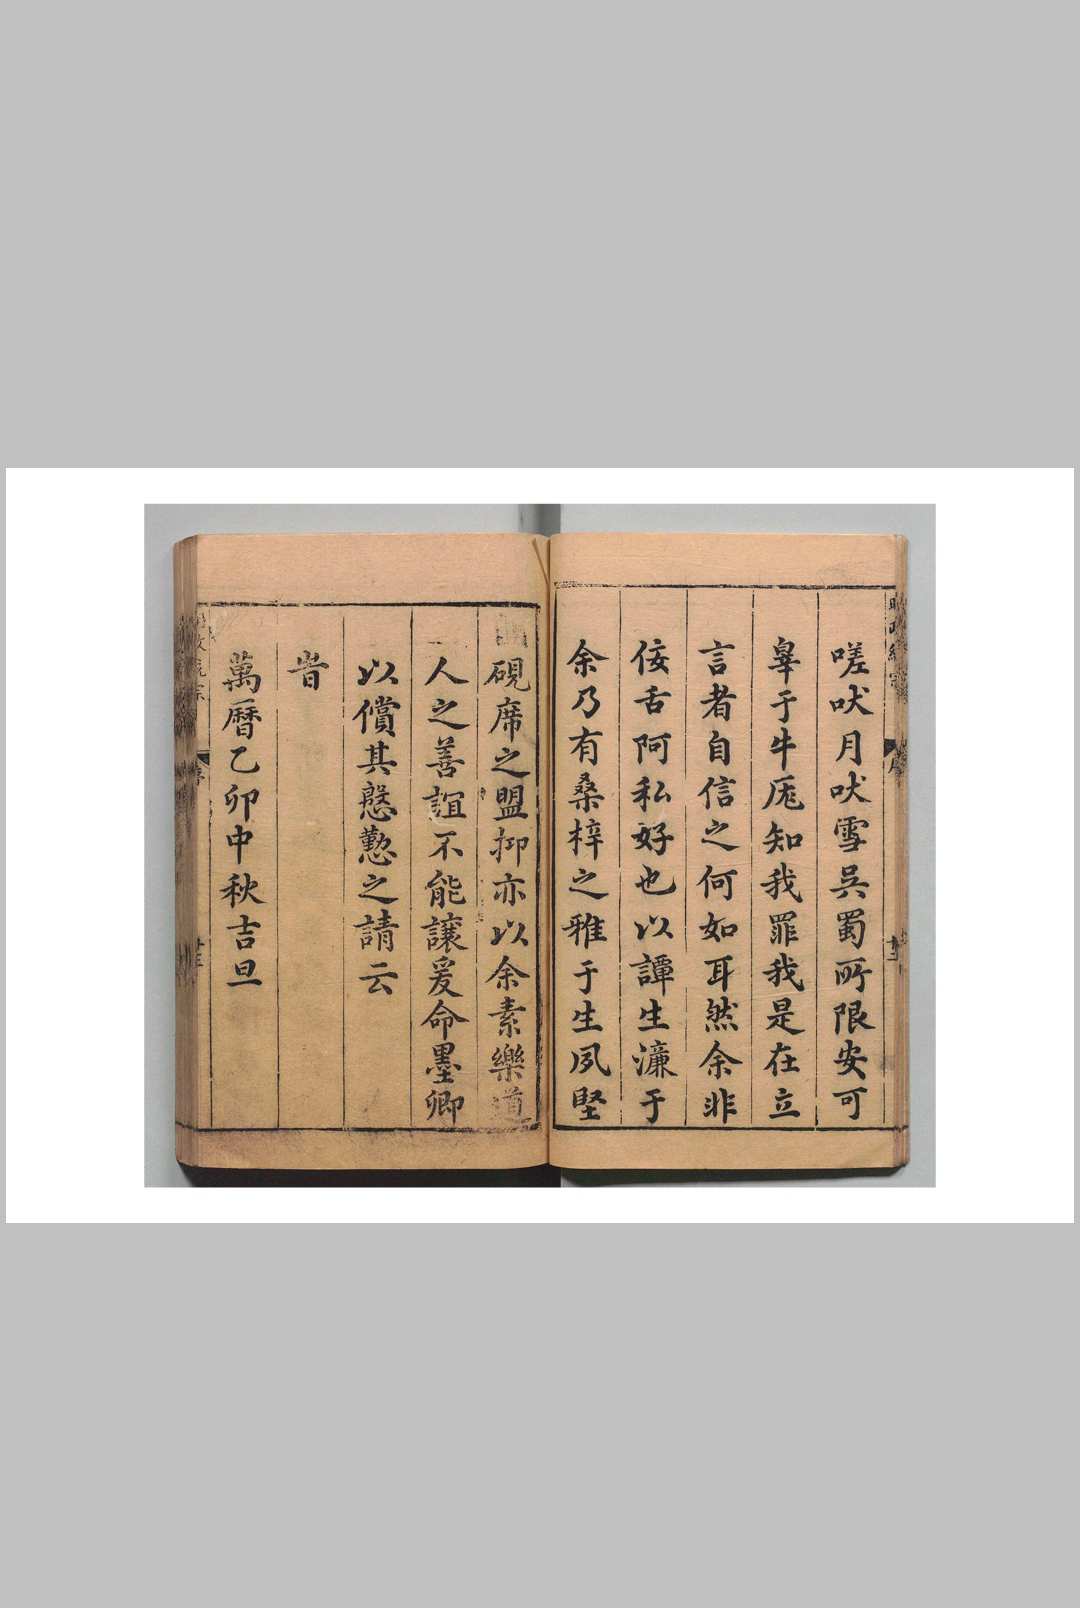 嗟吠月吠雪吳蜀所限安可
辠于牛㡳知我罪我是在立
言者自信之何如耳然余非
佞舌阿私好也以譚生濂于
余乃有桑梓之雅于生夙堅
硯席之盟抑亦以余素樂道
人之善誼不能讓爰命墨卿
以償其慇懃之請云
旹
萬曆乙卯中秋吉旦